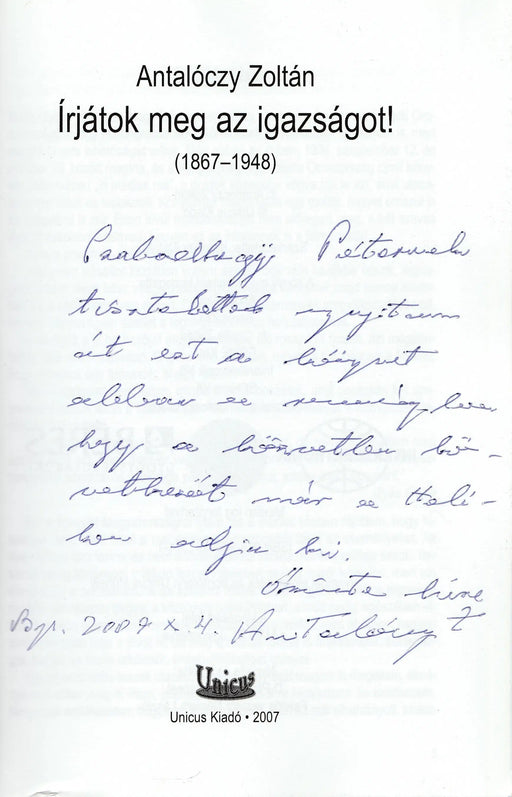 Antalóczy Zoltán
Írjátok meg az igazságot!
(1867–1948)
Szabadhegÿ Péternek
tisztelettel nyujtom
át ezt a könyvét
abban a reményben
hogy a közvetlen kö-
vetkezőt már a Heli-
kon adja ki.
Őszinte híve
Bp. 2007 X. 4. Antalóczy Z
Unicus
Unicus Kiadó • 2007